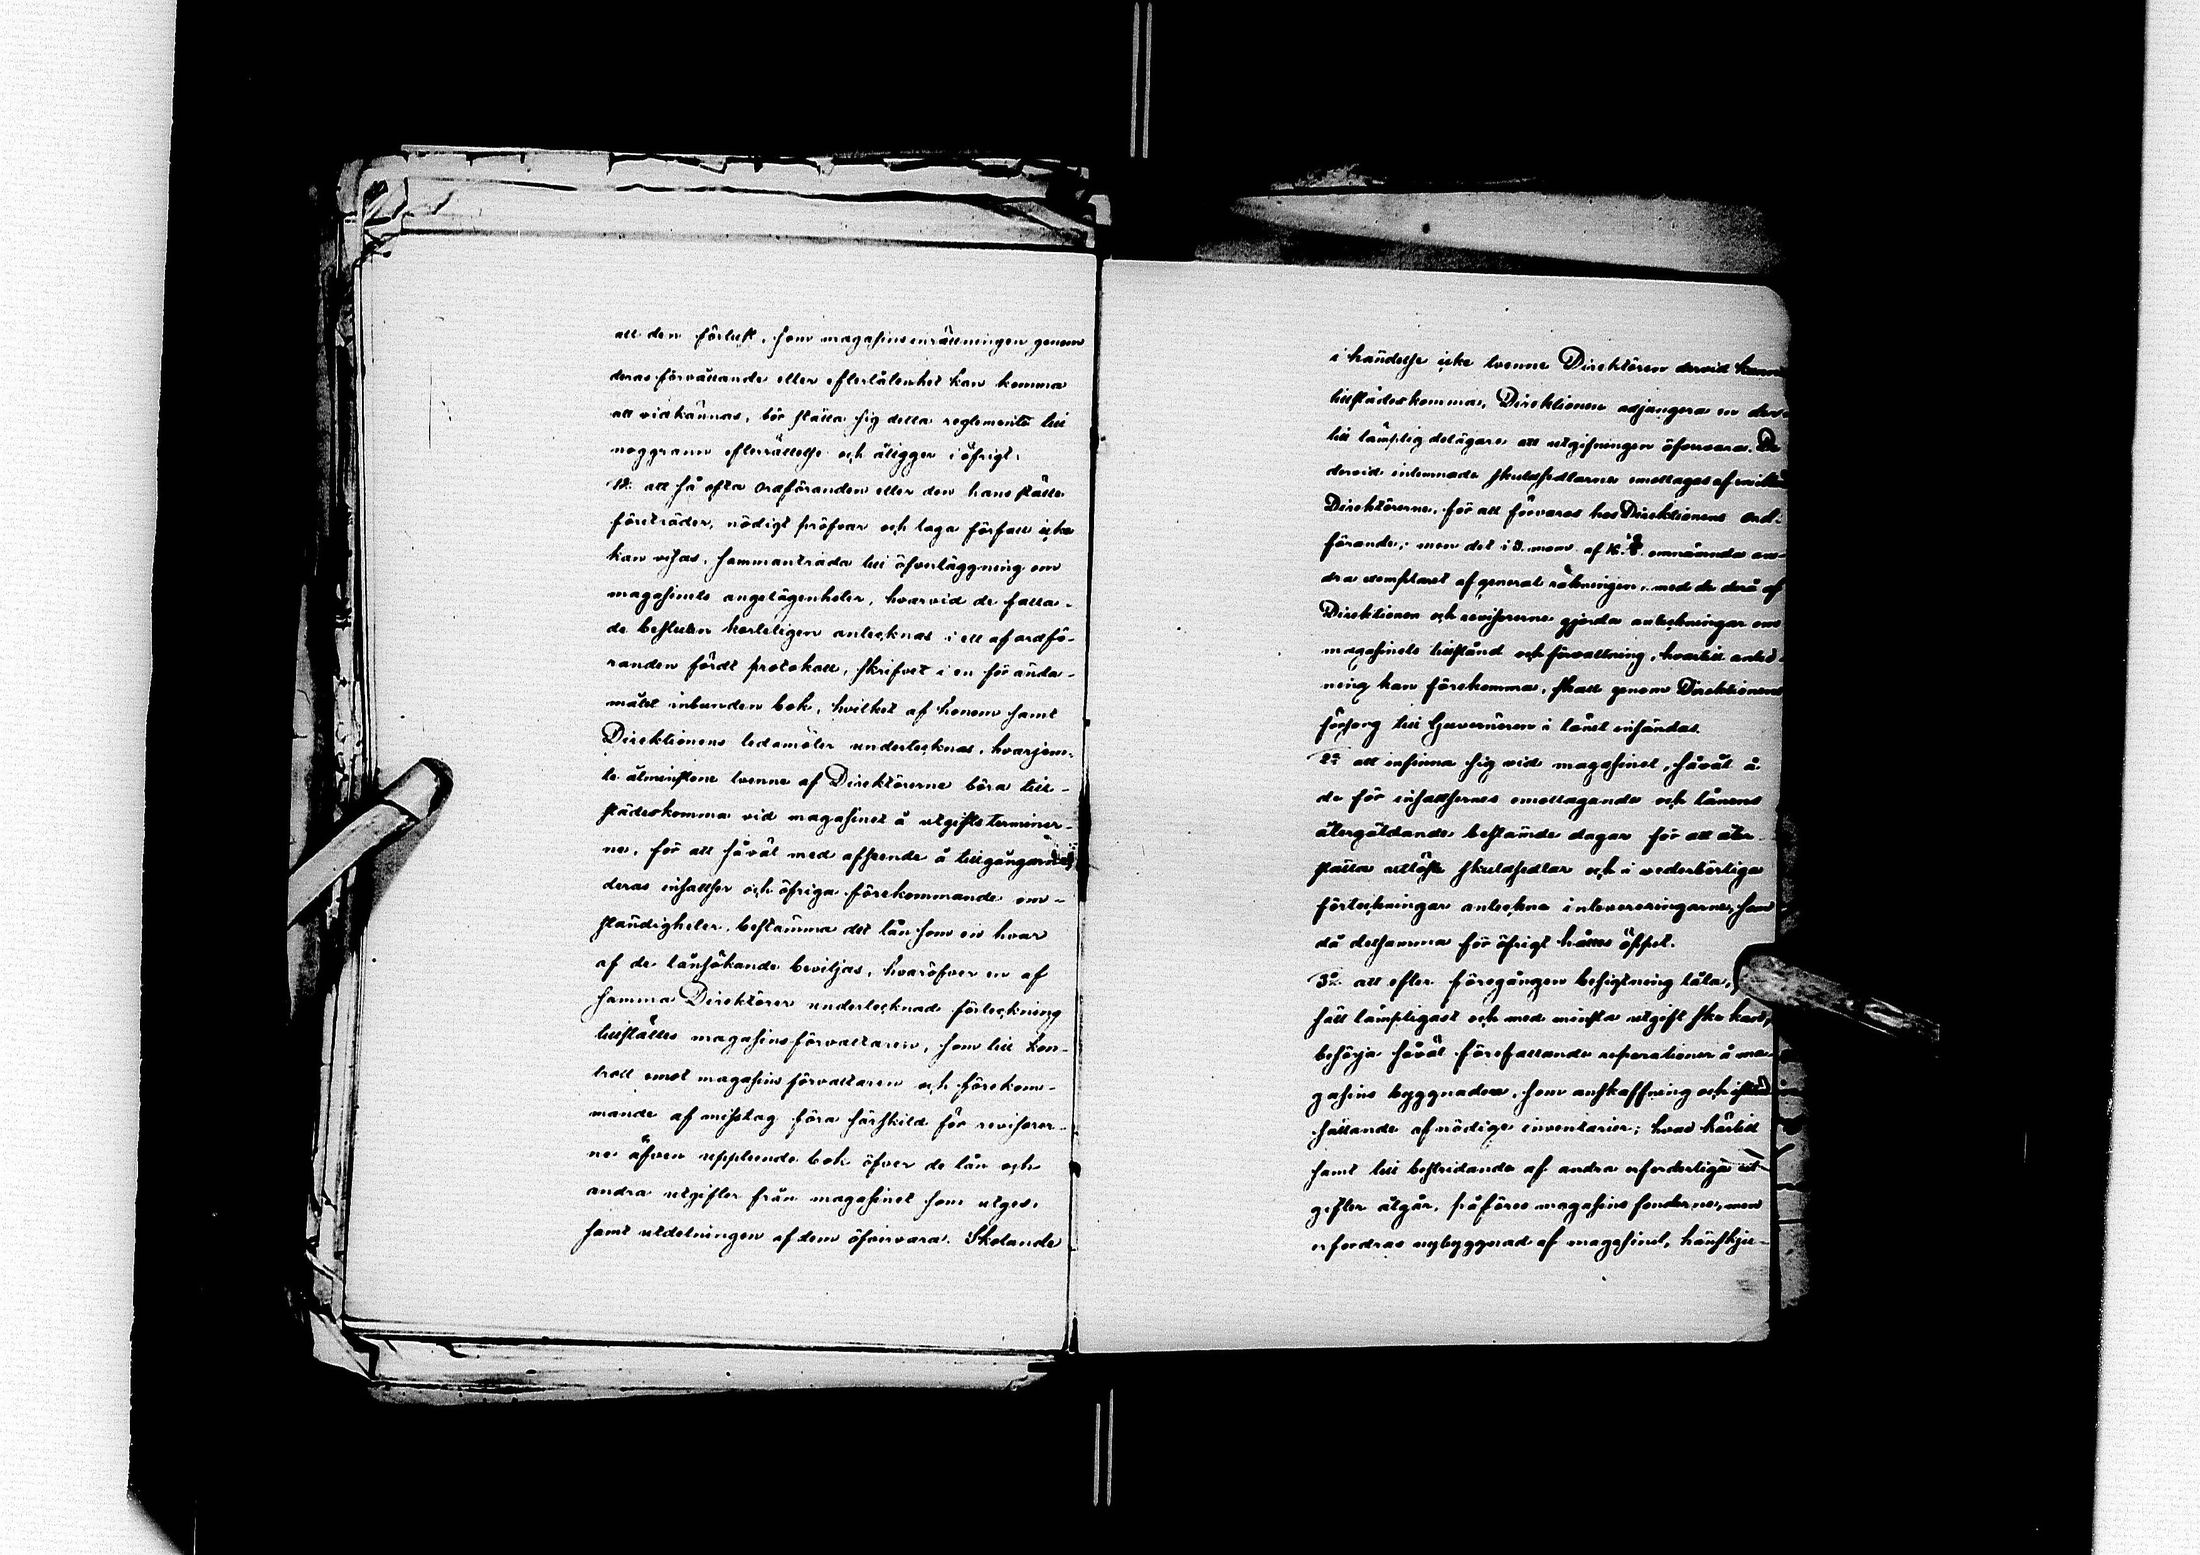 att den förlust, som magasinsinrättningen genom
deras förvållande eller efterlåtenhet kan komma
att vidkännas, bör ställa sig detta reglemente till
noggrann efterrättelse och åligger i öfrigt:
1:o att så ofta ordföranden eller den hans ställe
företräder, nödigt pröfvar och laga förfall icke
kan visas, sammanträda till öfverläggning om
magasinets angelägenheter, hvarvid de fatta-
de besluten korteligen antecknas i ett af ordfö-
randen fördt protokoll, skrifvet i en för ända-
målet inbunden bok, hvilket af honom samt
Direktionens ledamöter undertecknas, hvarjem-
te åtminstone tvenne af Direktörerne böra till-
städeskomma vid magasinet å utgiftsterminer-
ne, för att såväl med afseende å tillgångarne,
deras insatser och öfriga förekommande om-
ständigheter, bestämma det lån som en hvar
af de lånsökande beviljas, hvaröfver en af
samma Direktörer undertecknad förteckning
tillställes magasinsförvaltaren, som till kon-
troll emot magasinsförvaltaren och förekom-
mande af misstag föra särskild för revisorer-
ne äfven uppteende bok öfver de lån och
andra utgifter från magasinet som utges,
samt utdelningen af dem öfvervara. Skolande
i händelse icke tvenne Direktörer dervid kunna
tillstädeskomma, Direktionen adjungera en der-
till lämplig delägare att utgifningen öfvervara. De
dervid inlemnade skuldsedlarne emottages af
Direktörerne, för att förvaras hos Direktionens ord-
förande; men det i 3. mom. af 16. § omnämnda an-
dra exemplaret af general räkningen, med de derå af
Direktionen och revisorerne gjorda anteckningar om
magasinets tillstånd och förvaltning, hvartill anled-
ning kan förekomma, skall genom Direktionens
försorg till Guvernören i länet insändas.
2:o att infinna sig vid magasinet, såväl å
de för insatsernes emottagande och lånens
återgäldande bestämde dagar för att åter-
ställa utlöste skuldsedlar och i vederbörliga
förteckningar anteckna inlevereringarne, som
då detsamma för öfrigt hålles öppet.
3:o att efter föregången besigtning låta,
sätt lämpligast och med minsta utgift ske kan,
besörja såväl förefallande reparationer å ma-
gasins byggnaden, som anskaffning och istånd
sättande af nödiga inventarier; hvad härtill
samt till bestridande af andra erforderliga ut-
gifter åtgår, påföres magasins fonderne; men
erfordras nybyggnad af magasinet, hänskju-